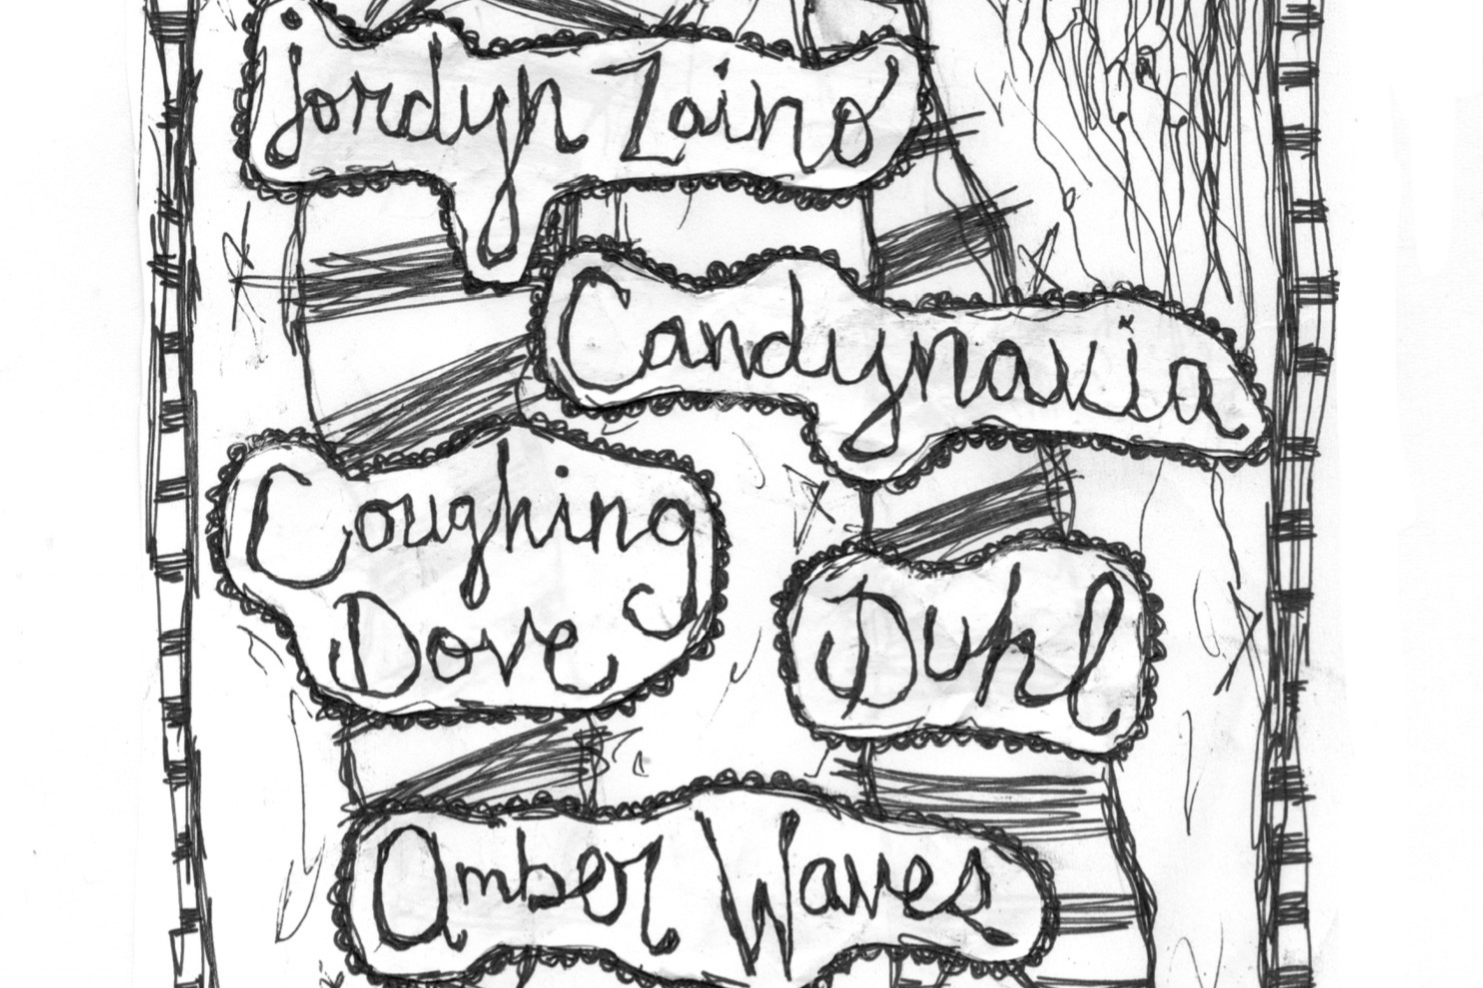 jordyn Zaino
Candynavia
Coughing
Dove
Duhl
Amber Waves